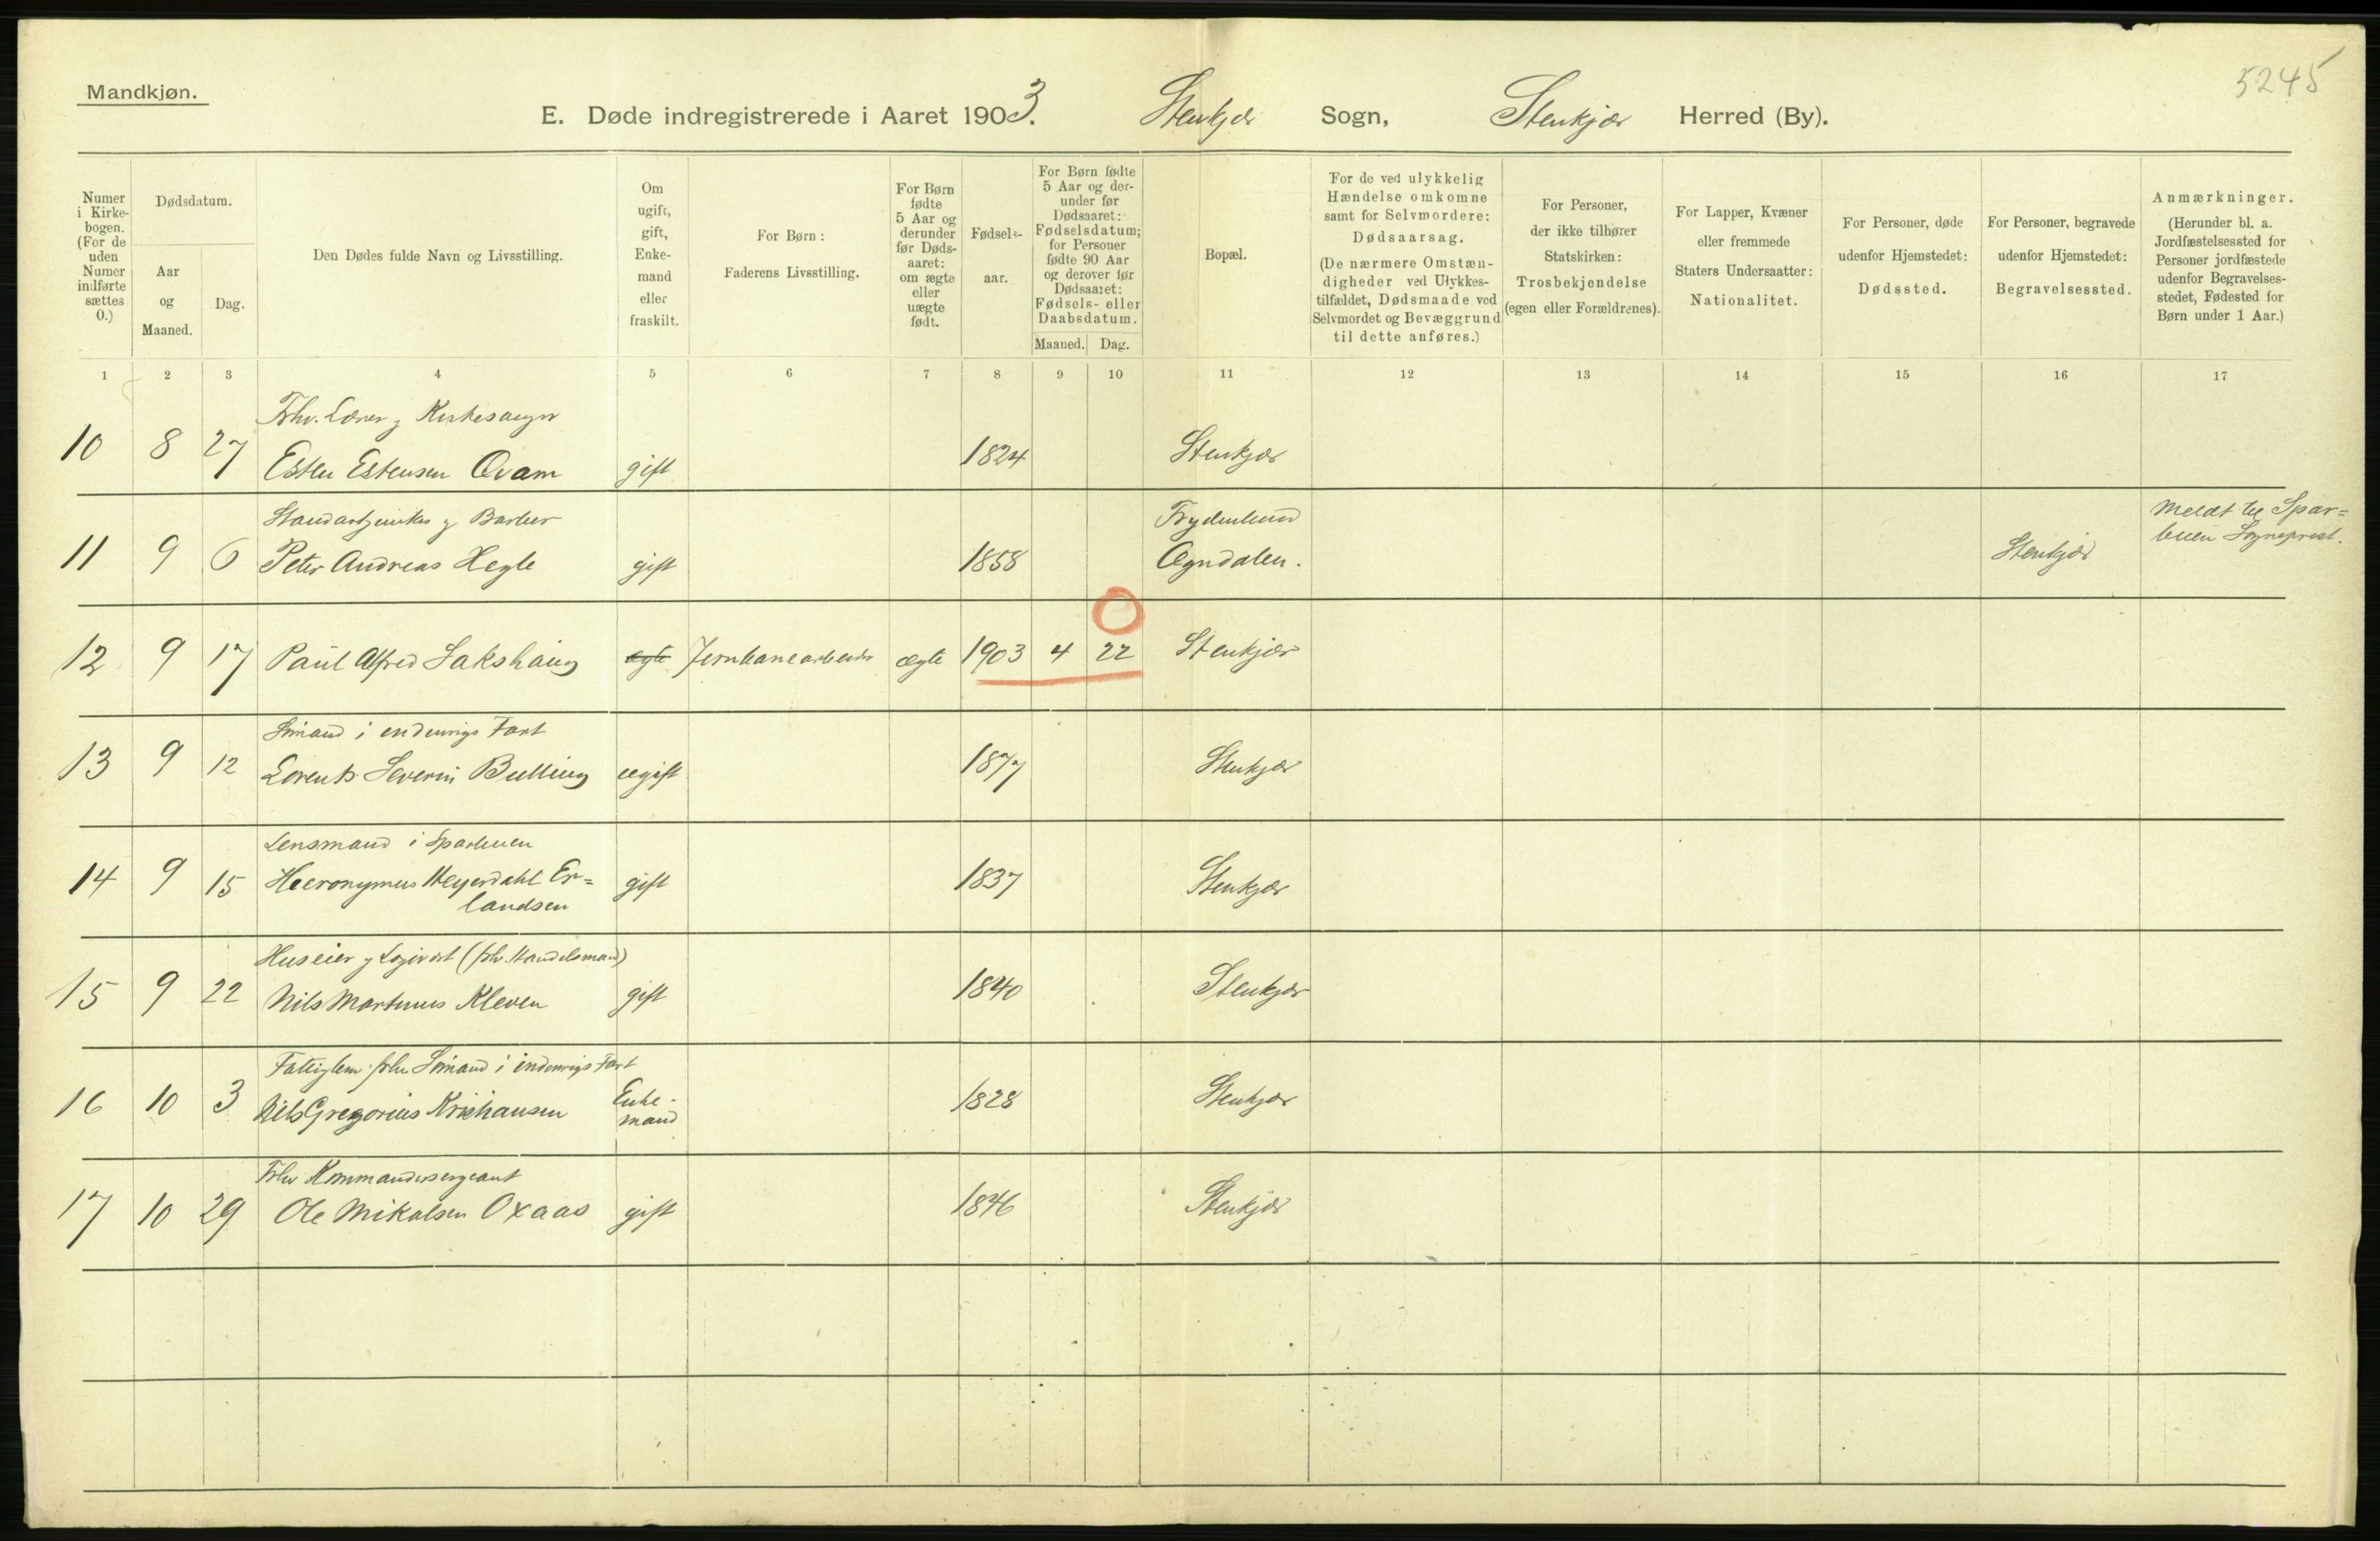 5245
Mandkjøn.
E. Døde indregistrerede i Aaret 1903. Stenkjær Sogn, Stenkjær Herred (By).
Numer i Kirke-
bogen.
(For de
uden
Numer
indførte
sættes
0.)
Dødsdatum.
Aar
og
Maaned.
Dag.
Den Dødes fulde Navn og Livsstilling.
Om
ugift,
gift,
Enke-
mand
eller
fraskilt.
For Børn:
Faderens Livsstilling.
For Børn
fødte
5 Aar og
derunder
før Døds-
aaret:
om ægte
eller
uægte
født.
Fødsels-
aar.
For Børn fødte
5 Aar og der-
under før
Dødsaaret:
Fødselsdatum;
for Personer
fødte 90 Aar
og derover før
Dødsaaret:
Fødsels- eller
Daabsdatum.
Maaned. Dag.
Bopæl.
For de ved ulykkelig
Hændelse omkomne
samt for Selvmordere:
Dødsaarsag.
(De nærmere Omstæn-
digheder ved Ulykkes-
tilfældet, Dødsmaade ved
Selvmordet og Bevæggrund
til dette anføres.)
For Personer,
der ikke tilhører
Statskirken:
Trosbekjendelse
(egen eller Forældrenes).
For Lapper, Kvæner
eller fremmede
Staters Undersaatter:
Nationalitet.
For Personer, døde
udenfor Hjemstedet:
Dødssted.
For Personer, begravede
udenfor Hjemstedet:
Begravelsessted.
Anmærkninger.
(Herunder bl. a.
Jordfæstelsessted for
Personer jordfæstede
udenfor Begravelses-
stedet, Fødested for
Børn under 1 Aar.)
1 2 3 4 5 6 7 8 9 10 11 12 13 14 15 16 17
Fhv. Lærer og Kirkesanger
10 8 27 Esten Estensen Qvam gift 1824 Stenkjær
Standartjunker og Barber Frydenlund Meldt til Spar=
11 9 6 Peter Andreas Hegle gift 1858 Ogndalen. Stenkjær buen Sogneprest.
12 9 17 Paul Alfred Sakshaug ægte Jernbanearbeider ægte 1903 4 22 Stenkjær
Sømand i indenrigs Fart
13 9 12 Lorents Severin Bulling ugift 1877 Stenkjær
Lensmand i Sparbuen
14 9 15 Hieronymus Heyerdahl Er= gift 1837 Stenkjær
landsen
Huseier og Logivert (fhv. Handelsmand)
15 9 22 Nils Martinus Kleven gift 1840 Stenkjær
Fattiglem fhv. Sømand i indenrigs Fart
16 10 3 Nils Gregorius Kristiansen Enke- 1828 Stenkjær
mand
Fhv Kommandersergeant
17 10 29 Ole Mikalsen Oxaas gift 1846 Stenkjær